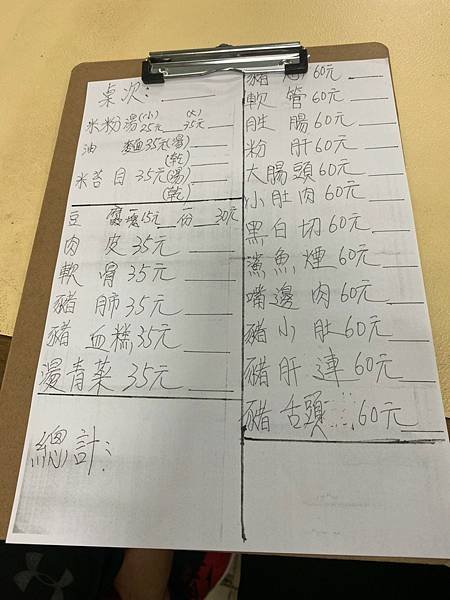 桌次:
米粉湯(小)25元 (大)35元
油麵35元(湯)
(乾)
米苔目 35元(湯)
(乾)
豆腐一塊15元 一份 30元
肉皮35元
軟骨35元
豬肺35元
豬血糕35元
燙青菜 35元
總計:
豬 60元
軟管60元
脏腸60元
粉肝60元
大腸頭60元
小肚肉60元
黑白切60元
鯊魚煙60元
嘴邊肉60元
豬小肚60元
豬肝連60元
豬舌頭...60元